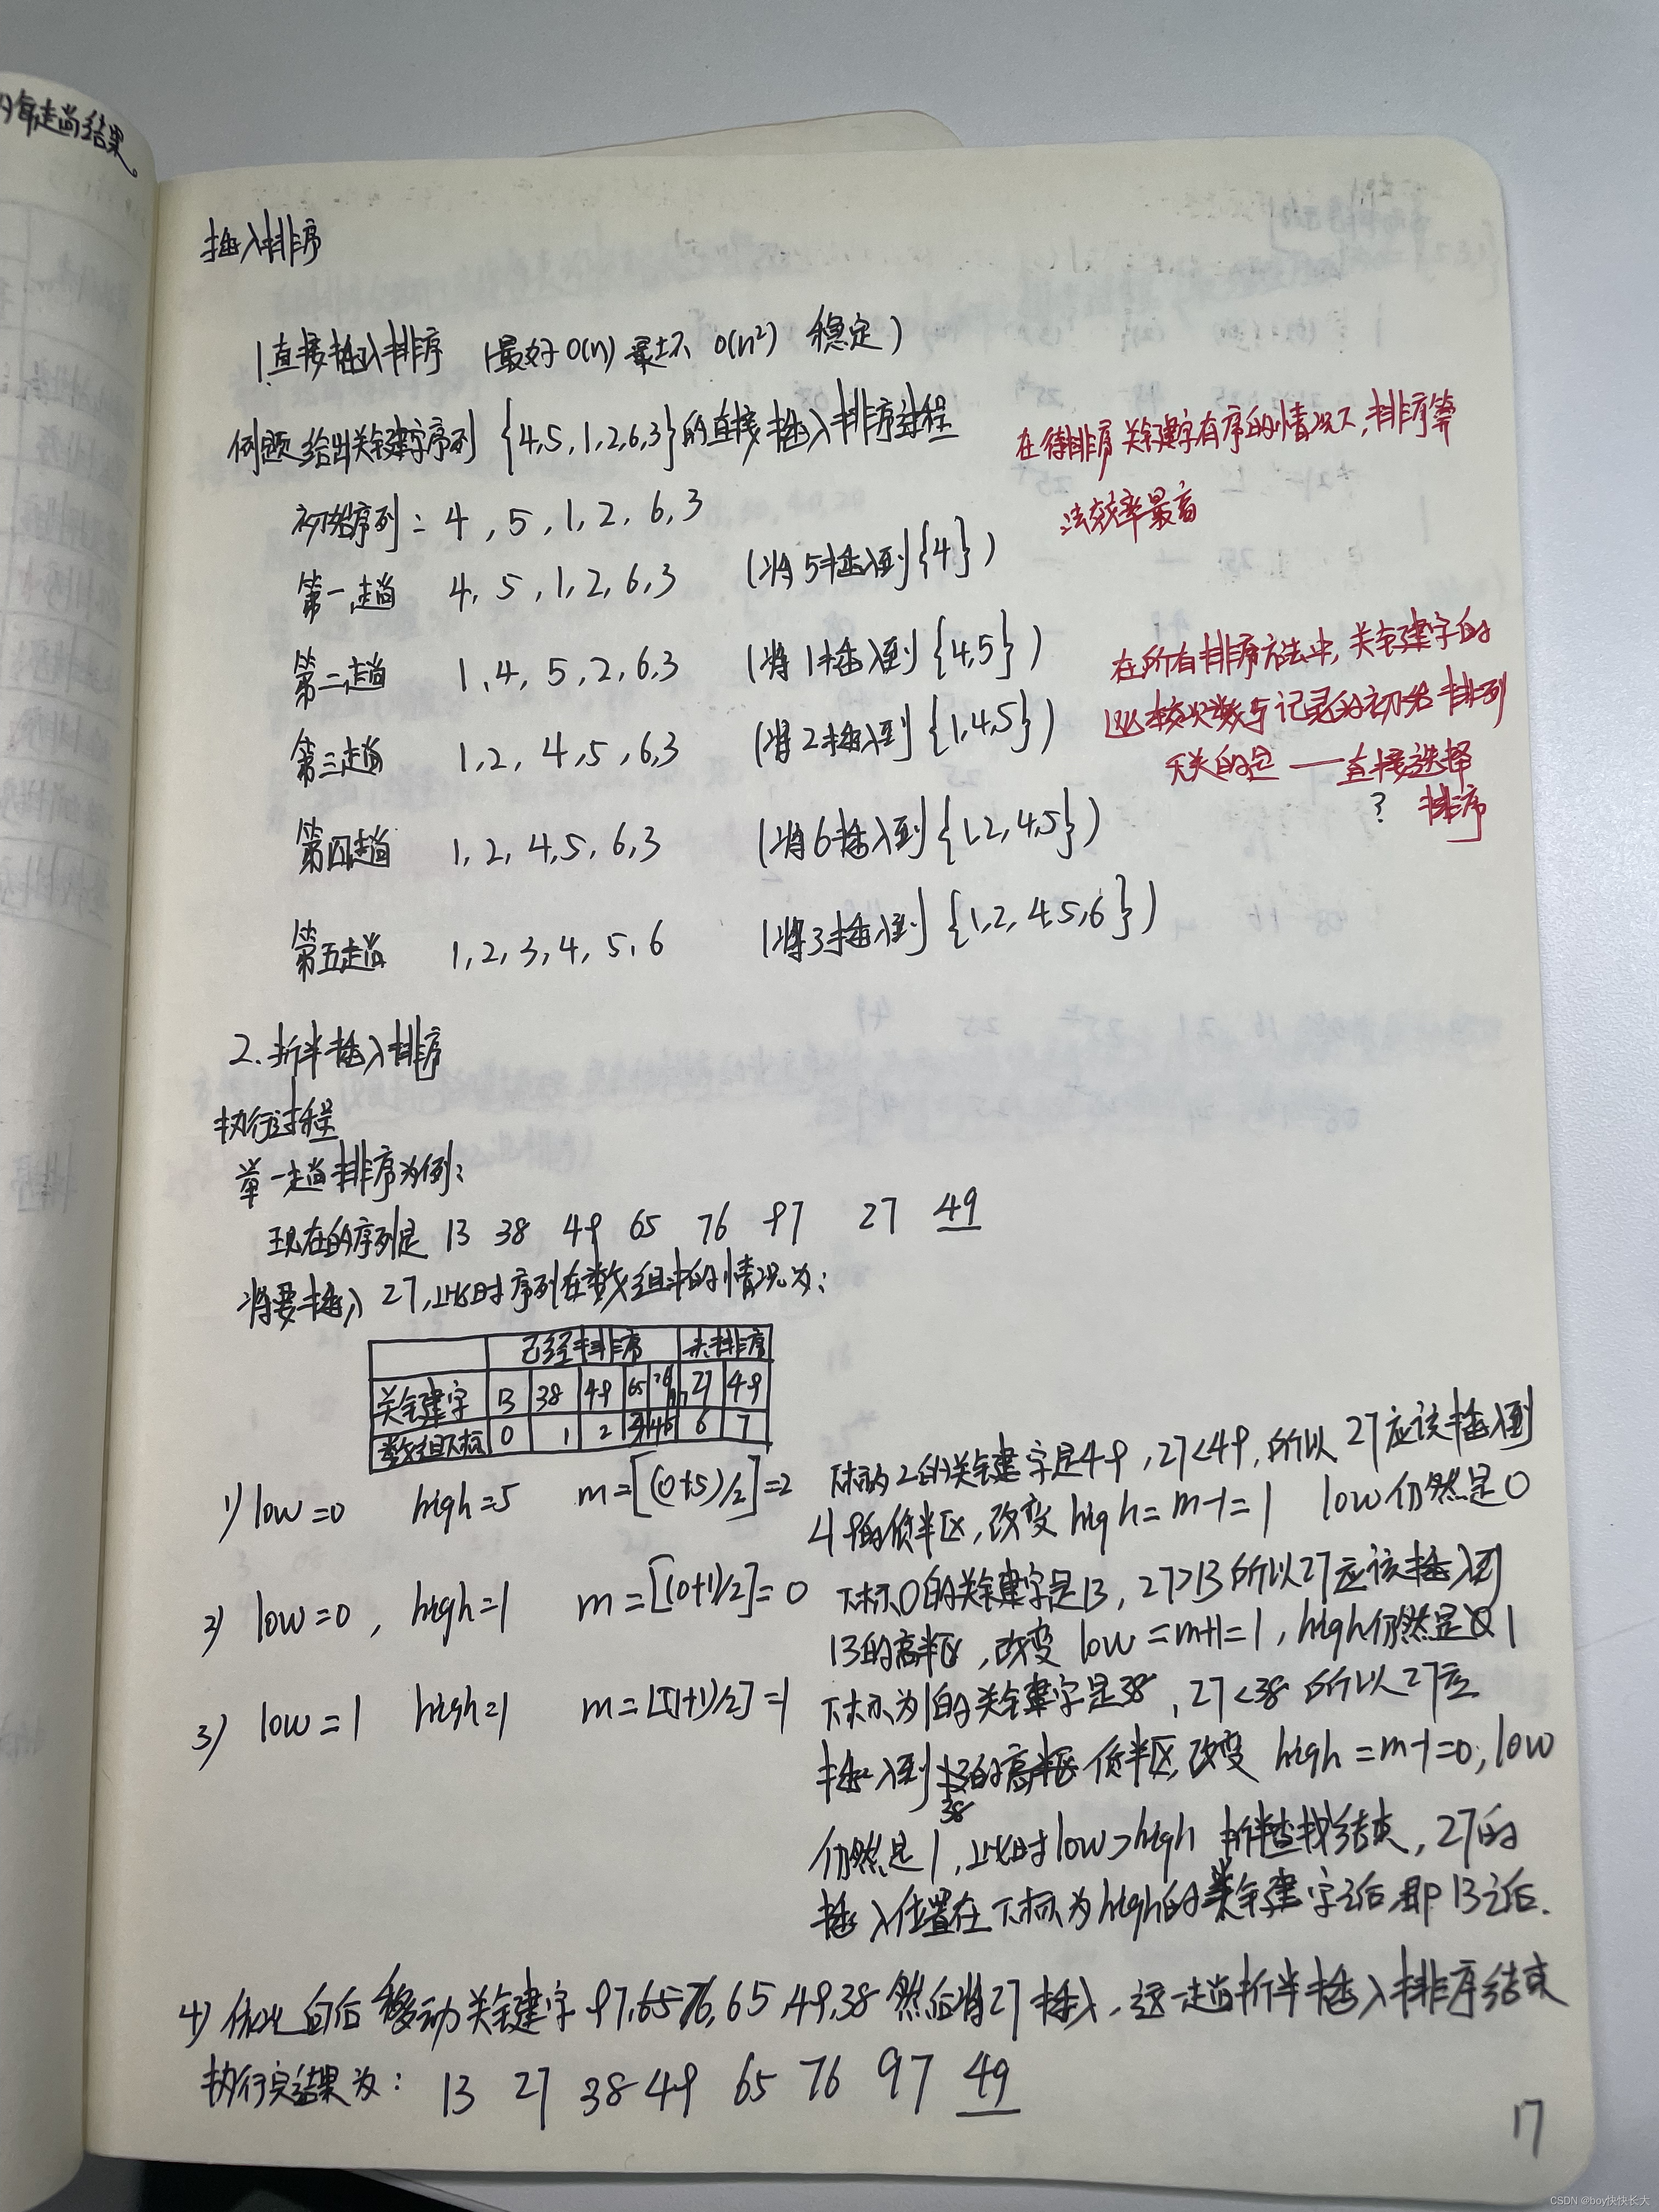 的每趟结果。
插入排序
1.直接插入排序 (最好O(n) 最坏 O(n²) 稳定)
例题 给出关键字序列 {4,5,1,2,6,3}的直接插入排序过程
初始序列: 4,5,1,2,6,3
第一趟 4,5,1,2,6,3 (将5插入到{4})
第二趟 1,4,5,2,6,3 (将1插入到{4,5})
第三趟 1,2,4,5,6,3 (将2插入到{1,4,5})
第四趟 1,2,4,5,6,3 (将6插入到{1,2,4,5})
第五趟 1,2,3,4,5,6 (将3插入到{1,2,4,5,6})
在待排序关键字有序的情况下,排序算
法效率最高
在所有排序方法中,关键字的
比较次数与记录的初始排列
无关的是——直接选择
? 排序
2.折半插入排序
执行过程
单一趟排序为例:
现在的序列是 13 38 49 65 76 97 27 49
将要插入 27,此时序列在数组中的情况为:
已经排序 未排序
关键字 13 38 49 65 76 97 27 49
数组下标 0 1 2 3 4 5 6 7
1) low=0 high=5 m=[(0+5)/2]=2 下标为2的关键字是49,27<49,所以27应该插入到
49的低半区,改变 high=m-1=1 low仍然是0
2) low=0, high=1 m=[(0+1)/2]=0 下标0的关键字是13,27>13所以27应该插入到
13的高半区,改变 low=m+1=1,high仍然是1
3) low=1 high=1 m=[(1+1)/2]=1 下标为1的关键字是38,27<38所以27应
插入到38低半区,改变 high=m-1=0,low
仍然是1,此时low>high 折半查找结束,27的
插入位置在下标为high的关键字之后即13之后.
4) 依次向后移动关键字97,76,65,49,38然后将27插入,这一趟折半插入排序结束
执行完结果为: 13 27 38 49 65 76 97 49
17
CSDN @boy快快长大